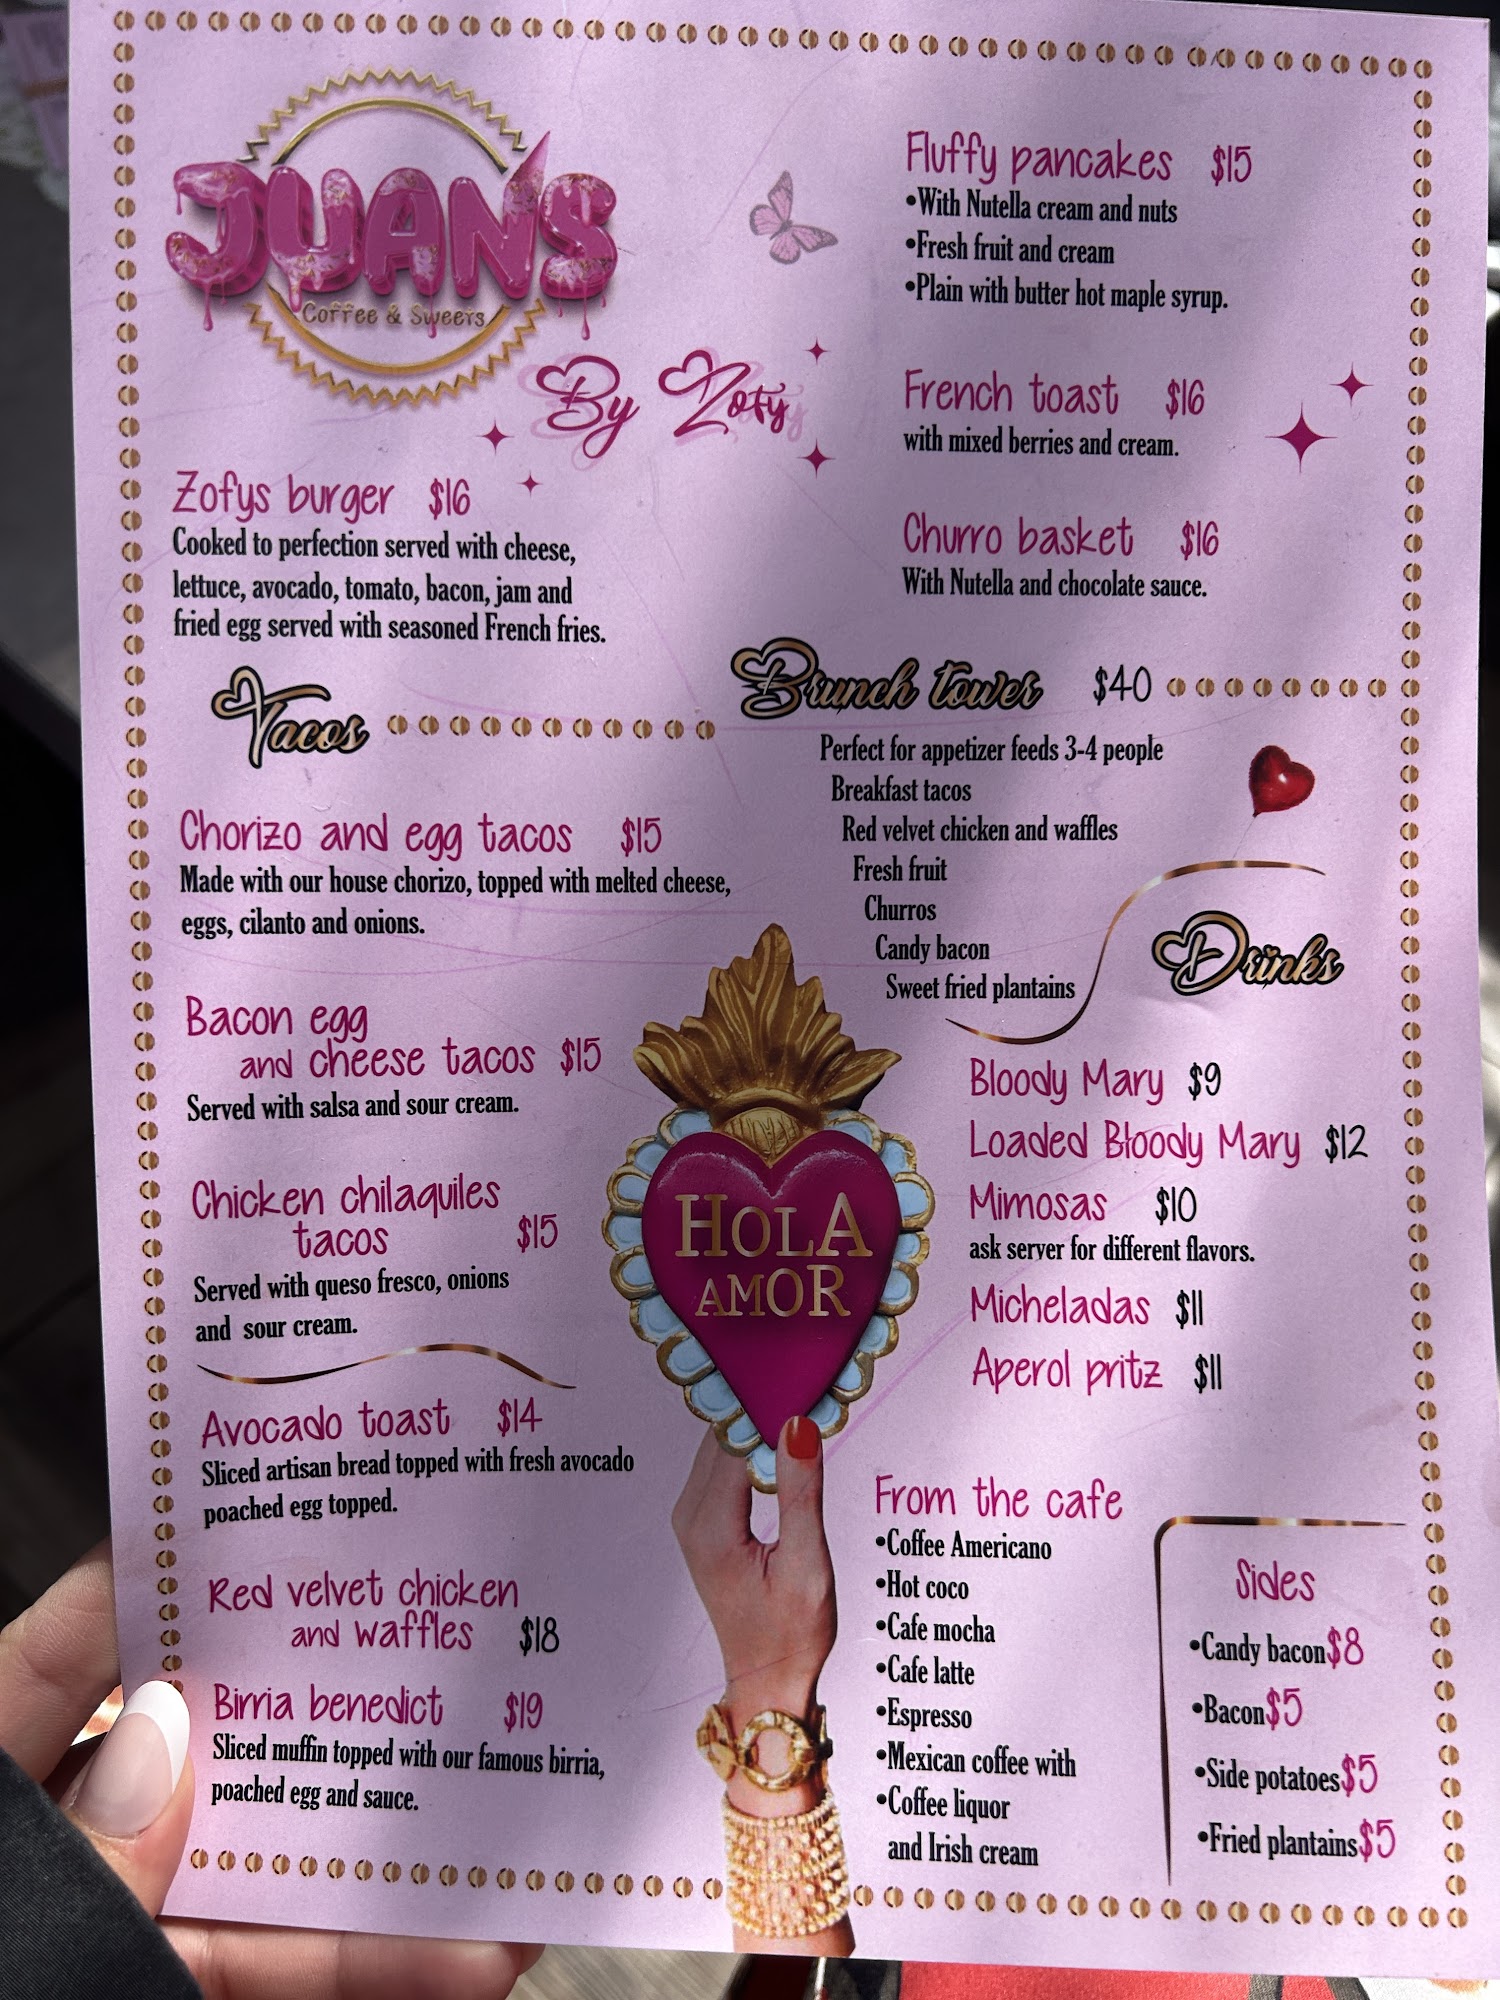 JUAN'S
Coffee & Sweets
By Zofy
Zofys burger $16
Cooked to perfection served with cheese,
lettuce, avocado, tomato, bacon, jam and
fried egg served with seasoned French fries.
Tacos
Chorizo and egg tacos $15
Made with our house chorizo, topped with melted cheese,
eggs, cilanto and onions.
Bacon egg
and cheese tacos $15
Served with salsa and sour cream.
Chicken chilaquiles
tacos $15
Served with queso fresco, onions
and sour cream.
Avocado toast $14
Sliced artisan bread topped with fresh avocado
poached egg topped.
Red velvet chicken
and waffles $18
Birria benedict $19
Sliced muffin topped with our famous birria,
poached egg and sauce.
HOLA
AMOR
Fluffy pancakes $15
•With Nutella cream and nuts
•Fresh fruit and cream
•Plain with butter hot maple syrup.
French toast $16
with mixed berries and cream.
Churro basket $16
With Nutella and chocolate sauce.
Brunch tower $40
Perfect for appetizer feeds 3-4 people
Breakfast tacos
Red velvet chicken and waffles
Fresh fruit
Churros
Candy bacon
Sweet fried plantains
Drinks
Bloody Mary $9
Loaded Bloody Mary $12
Mimosas $10
ask server for different flavors.
Micheladas $11
Aperol pritz $11
From the cafe
•Coffee Americano
•Hot coco
•Cafe mocha
•Cafe latte
•Espresso
•Mexican coffee with
•Coffee liquor
and Irish cream
Sides
•Candy bacon$8
•Bacon$5
•Side potatoes$5
•Fried plantains$5